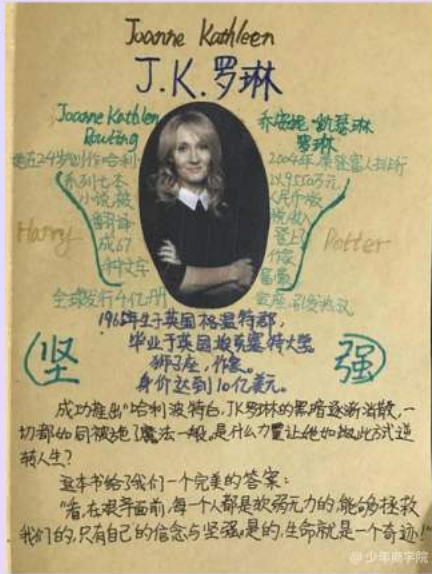 Joanne Kathleen
J.K.罗琳
Joanne Kathlen
Rowling
她在24岁创作哈利
系列七本
小说,被
翻译
成67
种文字
全球发行4亿册
乔安妮·凯瑟琳
罗琳
2004年,荣登富人排行
9550万元
人民币版
税收入
登上
作家
富豪
Harry
Potter
1965年生于英国格温特郡,
毕业于英国埃克塞特大学
狮子座,作家。
身价达到10亿美元。
坚
强
成功推出“哈利波特后,JK罗琳的黑暗逐渐消散,一
切都如同被施了魔法一般。是什么力量让她如此方式逆
转人生?
这本书给了我们一个完美的答案:
“看,在艰辛面前,每一个人都是软弱无力的,能够拯救
我们的,只有自己的信念与坚强,是的,生命就是一个奇迹!”
@少年商学院